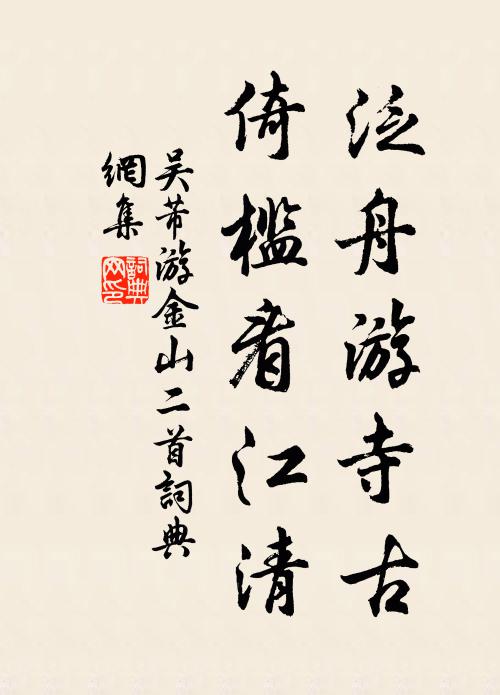 泛舟游寺古
倚檻看江清
吴芾游金山二首詞典
網集
詞典
网印